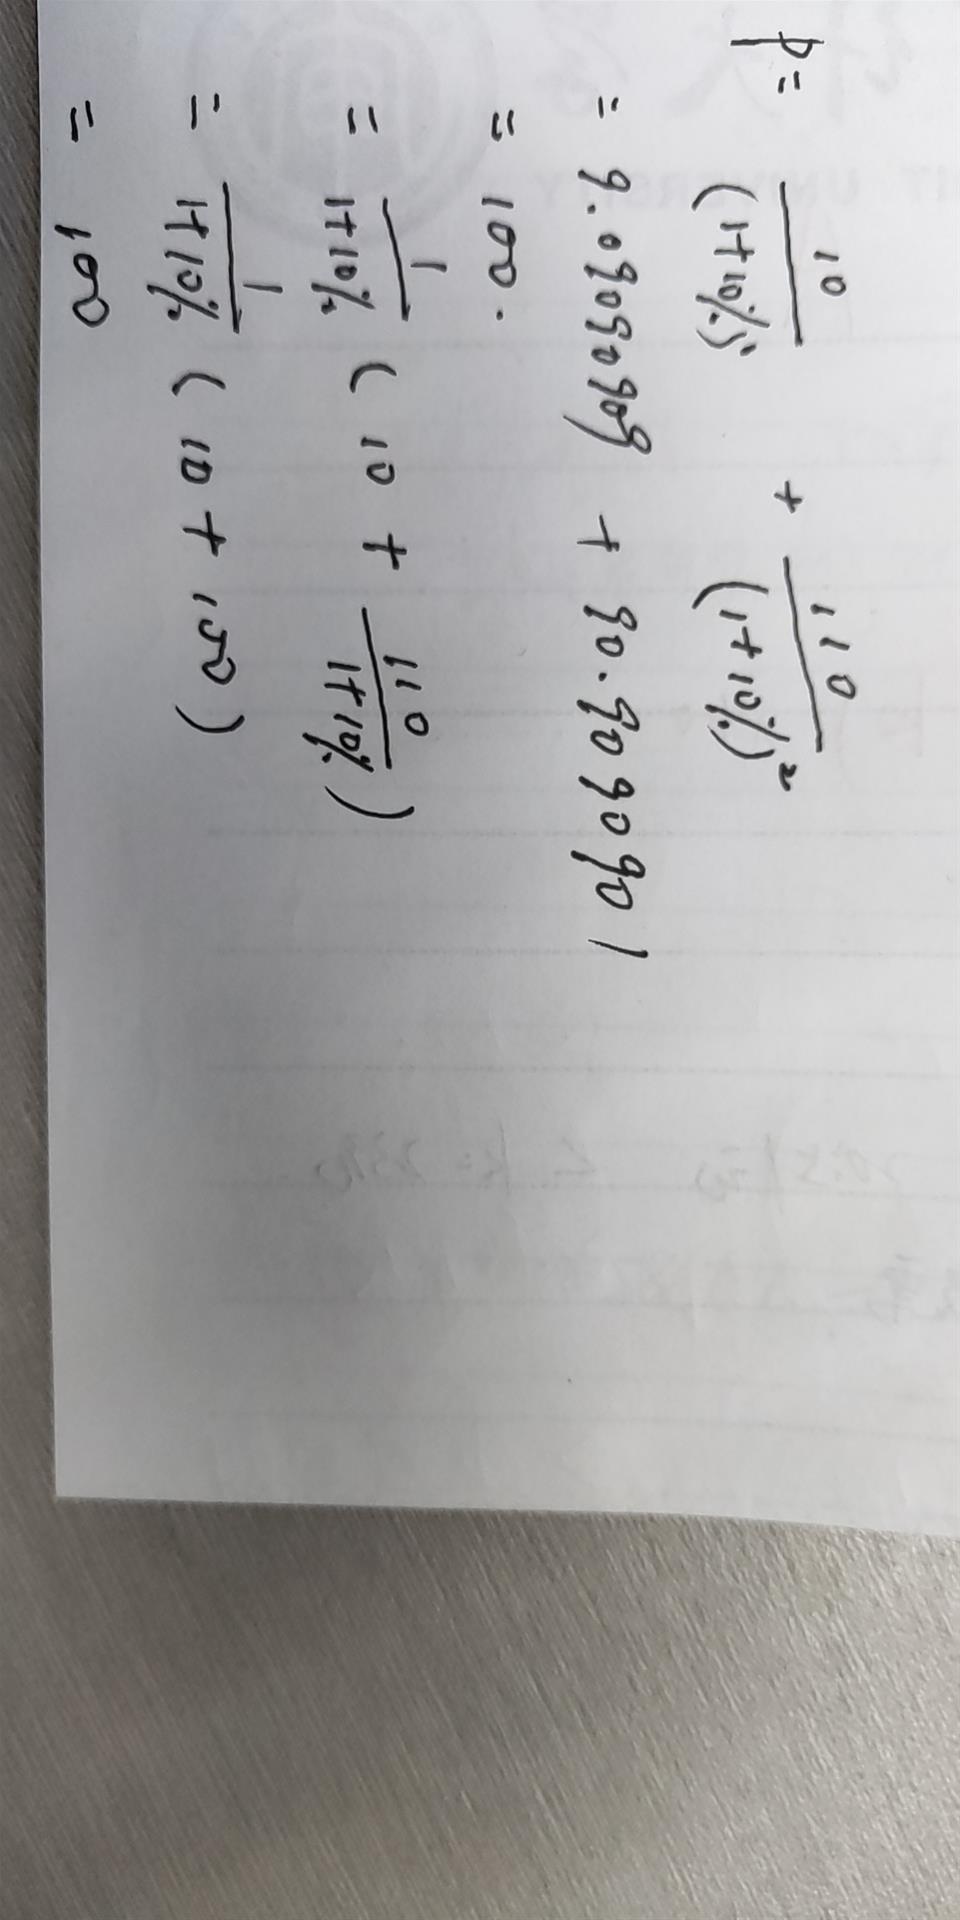 P = 10/(1+10%)¹ + 110/(1+10%)²
= 9.09090909 + 90.9090901
= 100.
= 1/1+10% ( 10 + 110/1+10% )
= 1/1+10% ( 10 + 100 )
= 100